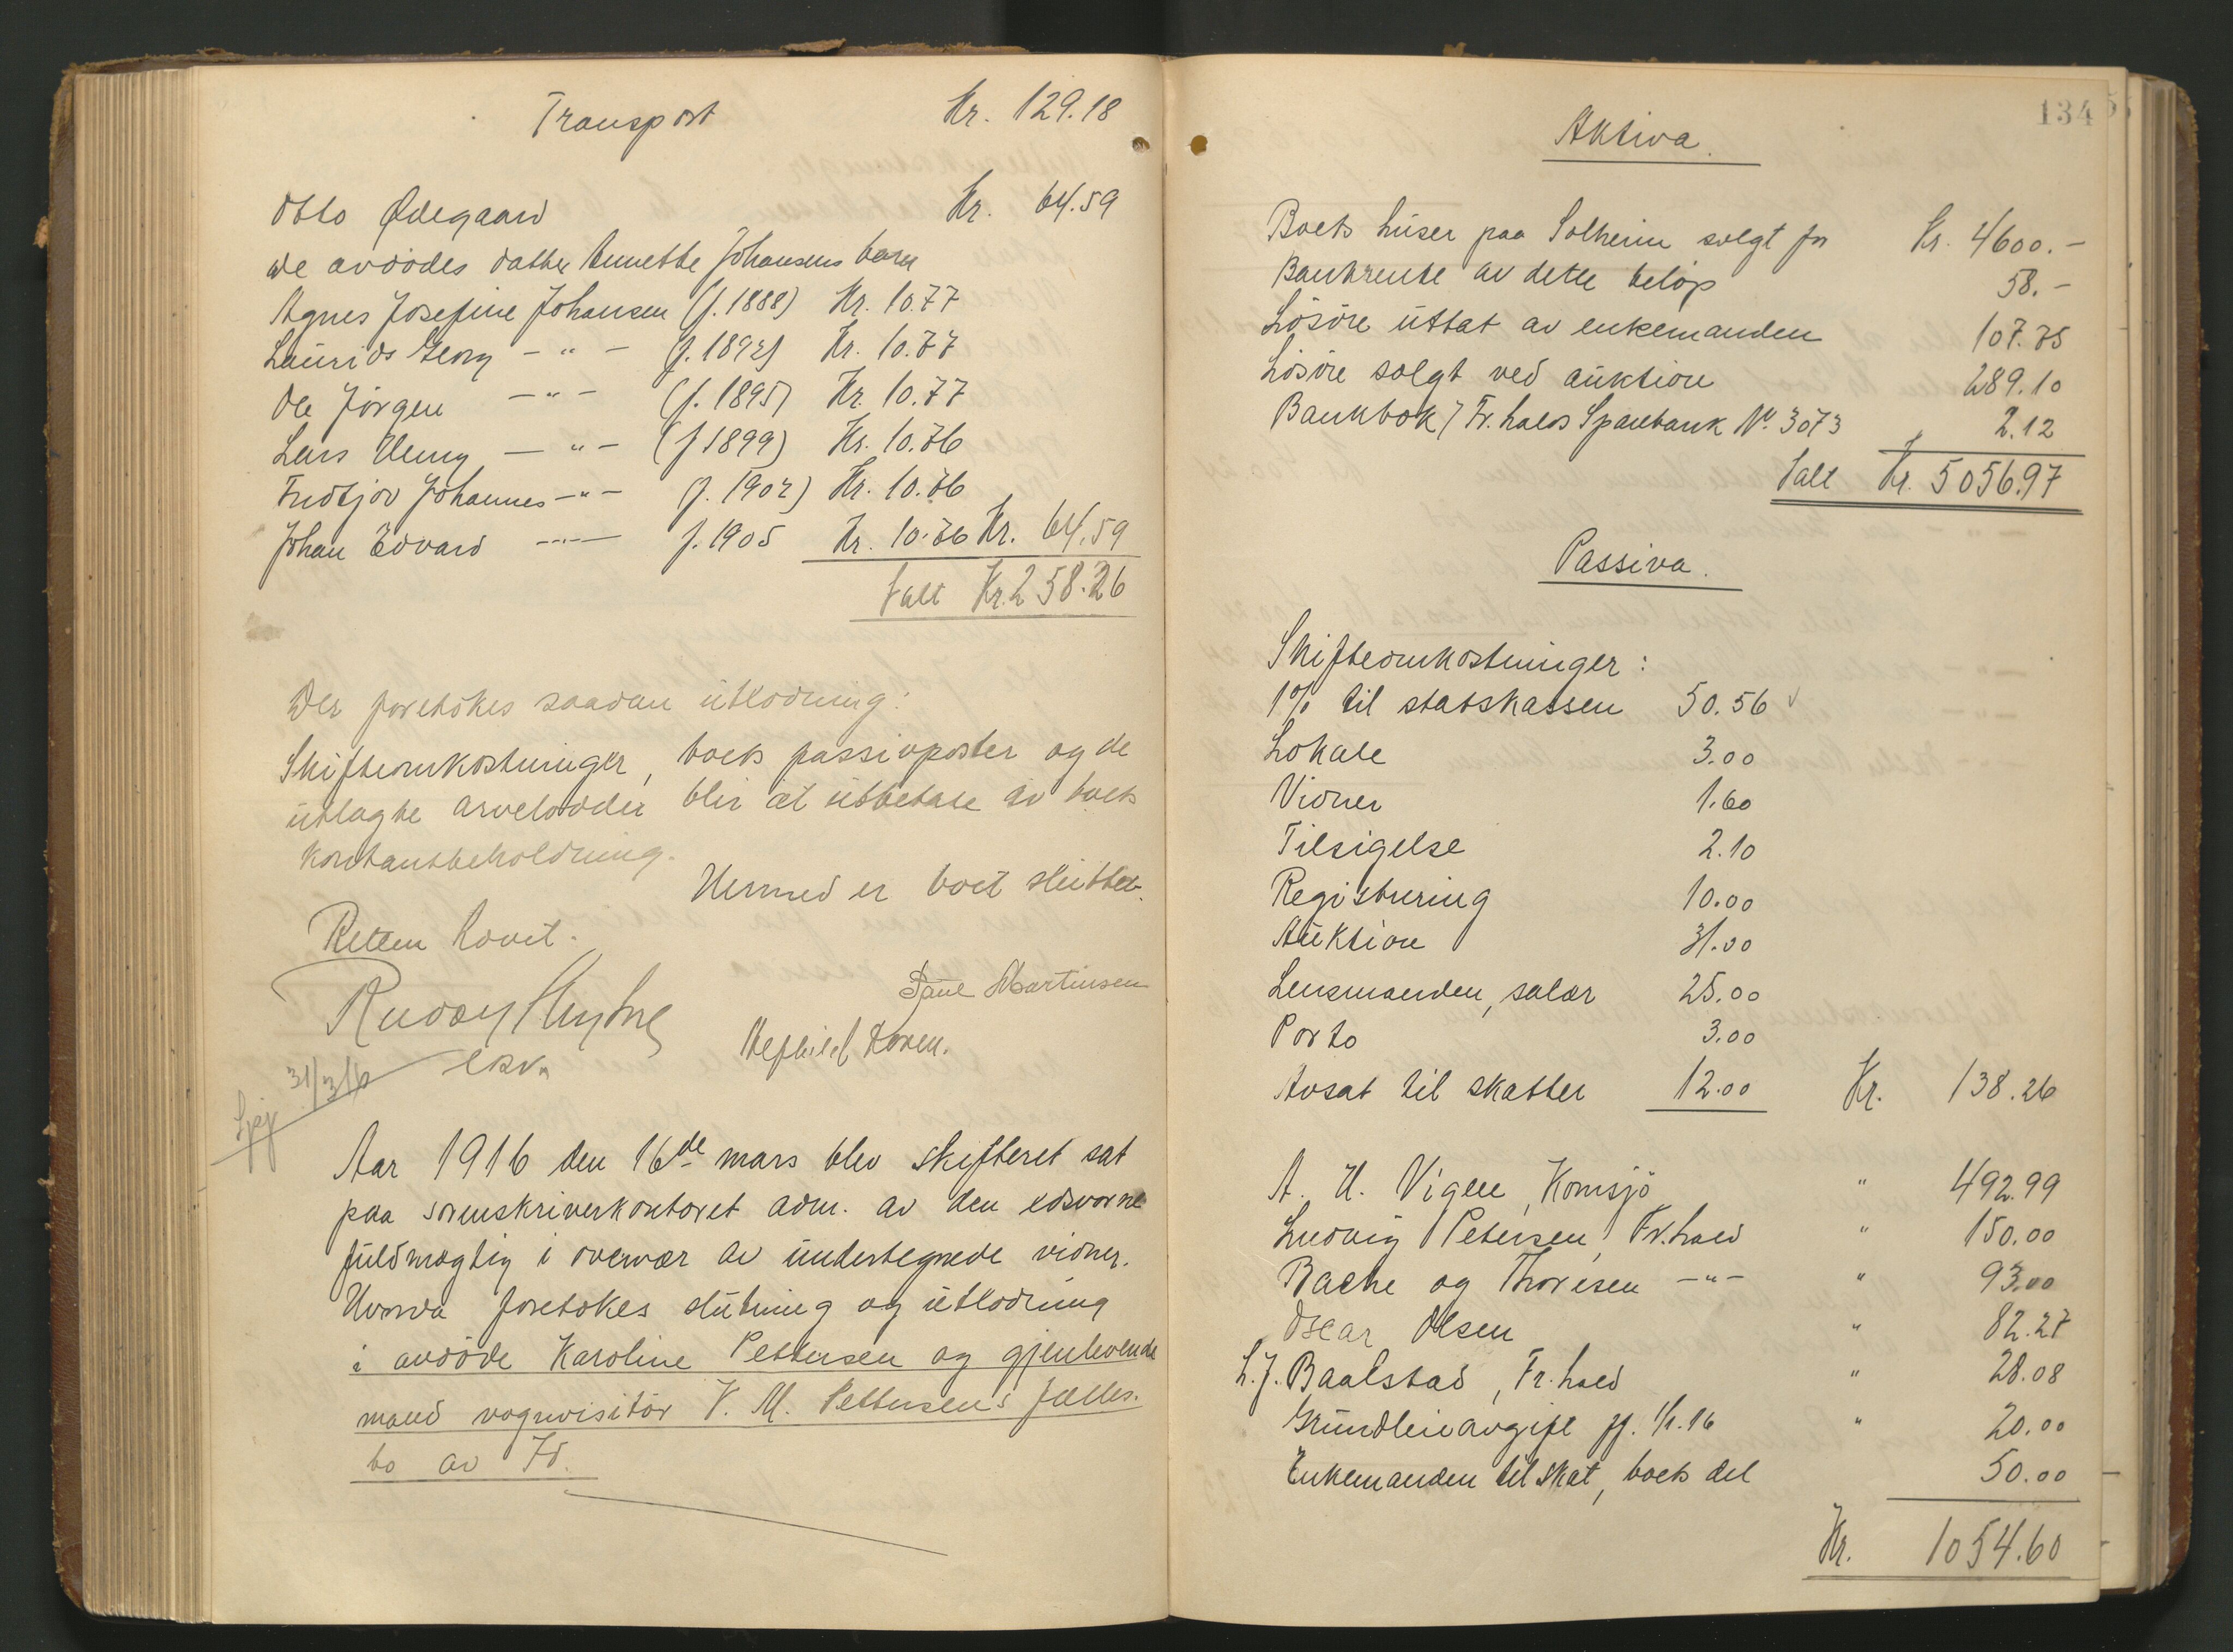 Transport Kr. 129.18
Otto Ødegaard Kr. 64.59
de avdødes datter Annette Johansens barn
Agnes Josefine Johansen (f. 1888) Kr. 10.77
Laurids Georg - " - (f. 1892) Kr. 10.77
Ole Jørgen - " - (f. 1895) Kr. 10.77
Lars Henry - " - (f 1899) Kr. 10.76
Fridtjov Johannes - " - (f. 1902) Kr. 10.76
Johan Edvard - " - f. 1905 Kr. 10.76 Kr. 64.59
Ialt Kr. 258.36
Der foretokes saadan utlodning:
Skifteomkostninger, boets passivposter og de
utlagte arvelodder blir at utbetale av boets
kontantbeholdning.
Hermed er boet sluttet.
Retten hævet.
esv.
Paul Martinsen
31/3 16
Aar 1916 den 16de mars blev skifteret sat
paa sorenskriverkontoret adm. av den edsvorne
fuldmægtig i overvær av undertegnede vidner.
Hvorda foretokes slutning og utlodning
i avdöde Karoline Pettersen og gjenlevende
mand vognvisitør V. M. Pettersen's fælles-
bo av Id.
134
Aktiva.
Boets huser paa Solheim solgt for Kr. 4600.-
Bankrente av dette beløp 58.-
Løsøre uttat av enkemanden 107.75
Løsøre solgt ved auktion 289.10
Bankbok / Fr.halds Sparebank No. 3073 2.12
Ialt Kr. 5056.97
Passiva.
Skifteomkostninger:
1% til statskassen 50.56 √
Lokale 3.00
Vidner 1.60
Tilsigelse 2.10
Registrering 10.00
Auktion 31.00
Lensmanden, salær 25.00
Porto 3.00
Avsat til skatter 12.00 Kr. 138.26
A. H. Vigen, Kornsjø " 492.99
Ludvig Petersen, Fr.hald " 150.00
Bache og Thoresen - " - " 93.00
Oscar Olsen " 82.27
L. J. Baalstad, Fr.hald " 28.08
Grundleieavgift pr. 1/1.16 " 20.00
Enkemanden til skat, boets del 50.00
Kr. 1054.60